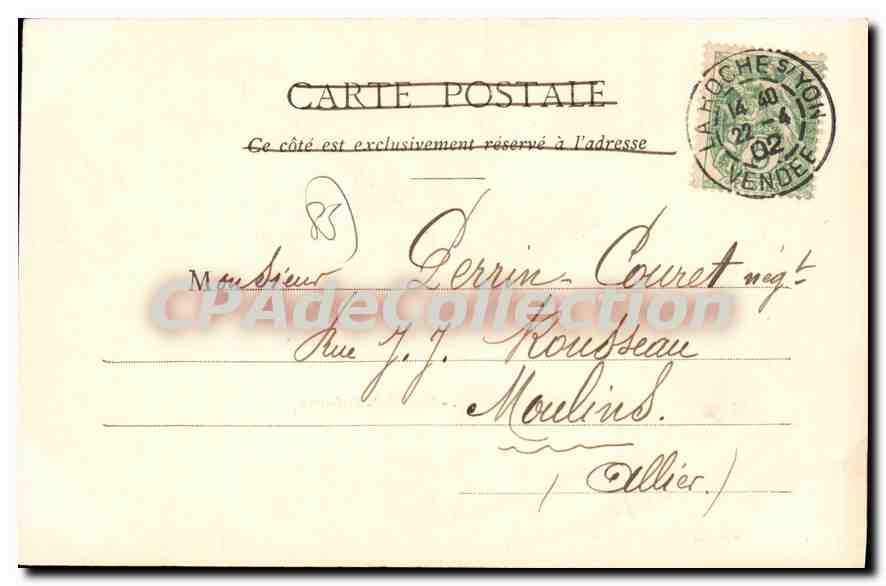 CARTE POSTALE
Ce côté est exclusivement réservé à l'adresse
LA ROCHE S/ YON
14 40
22 - 4
02
VENDEE
85
Monsieur Perrin-Couret négt
CPAdeCollection
Rue J. J. Rousseau
Moulins.
(Allier.)